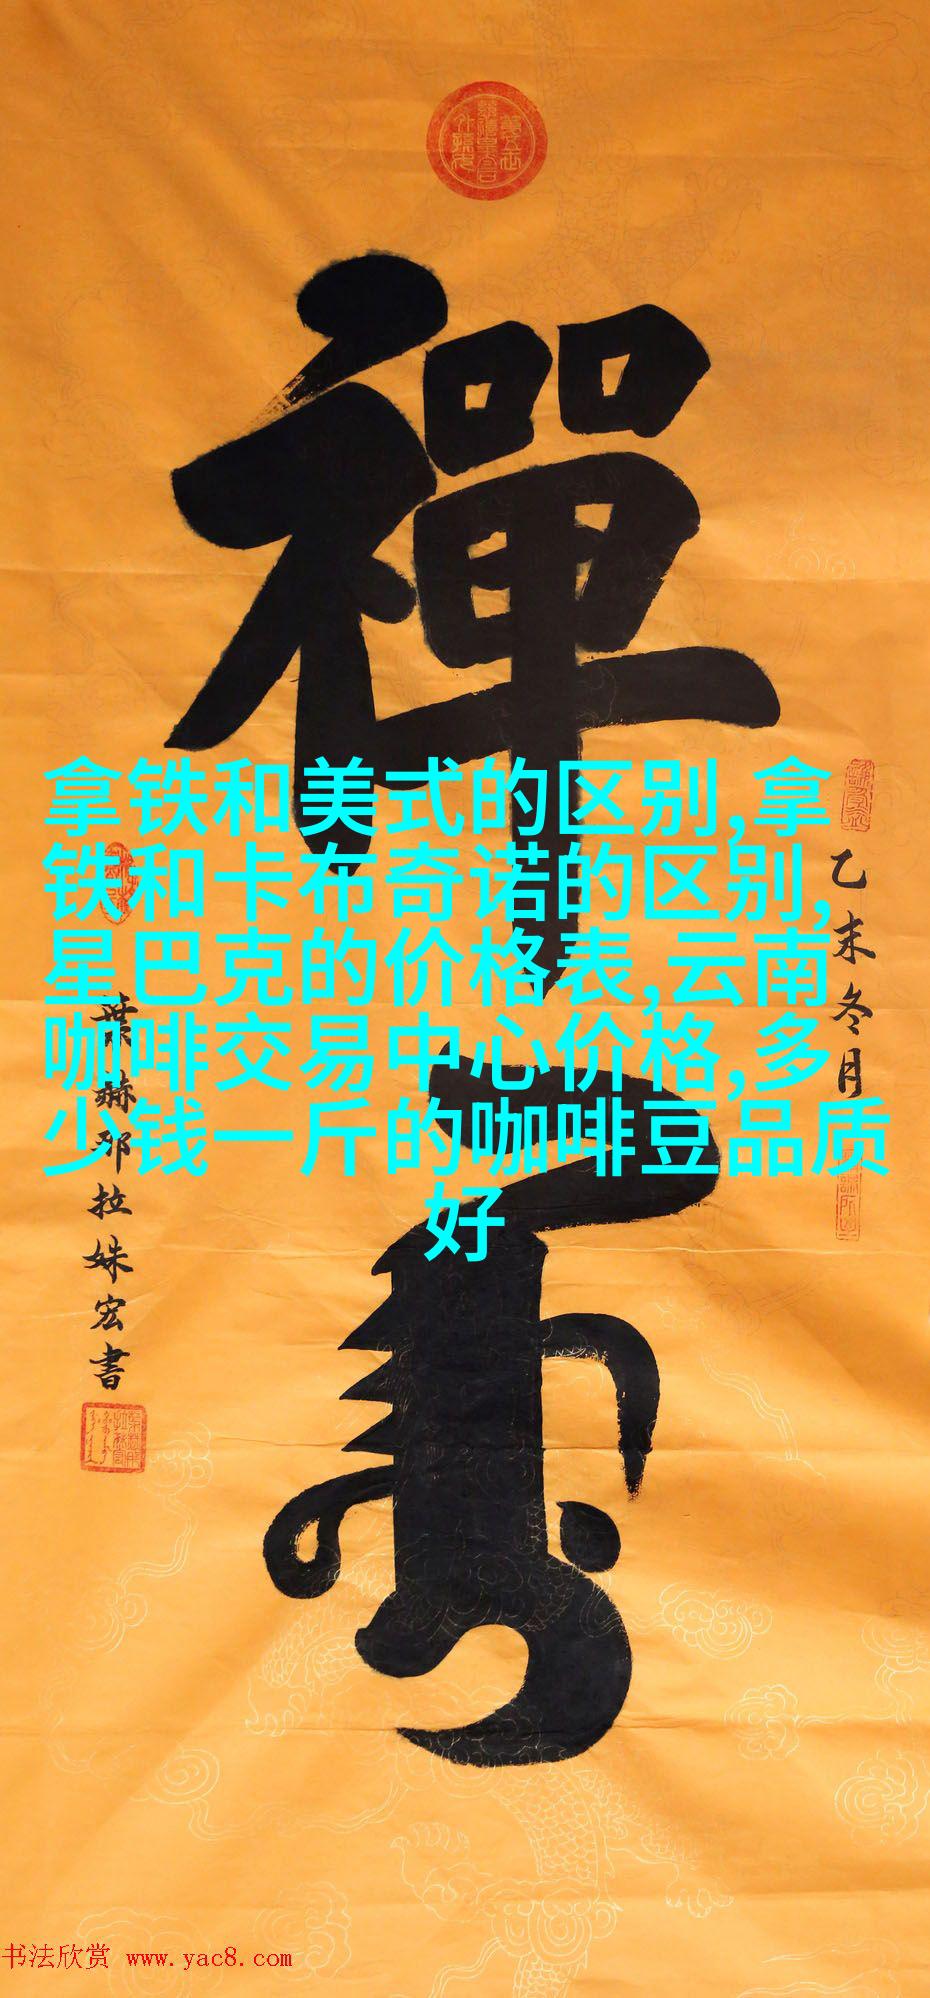 禪
拿铁和美式的区别,拿
铁和卡布奇诺的区别,
星巴克的价格表,云南
咖啡交易中心价格,多
少钱一斤的咖啡豆品质
好
乙未冬月
葉赫那拉姝宏書
书法欣赏 www.yac8.com